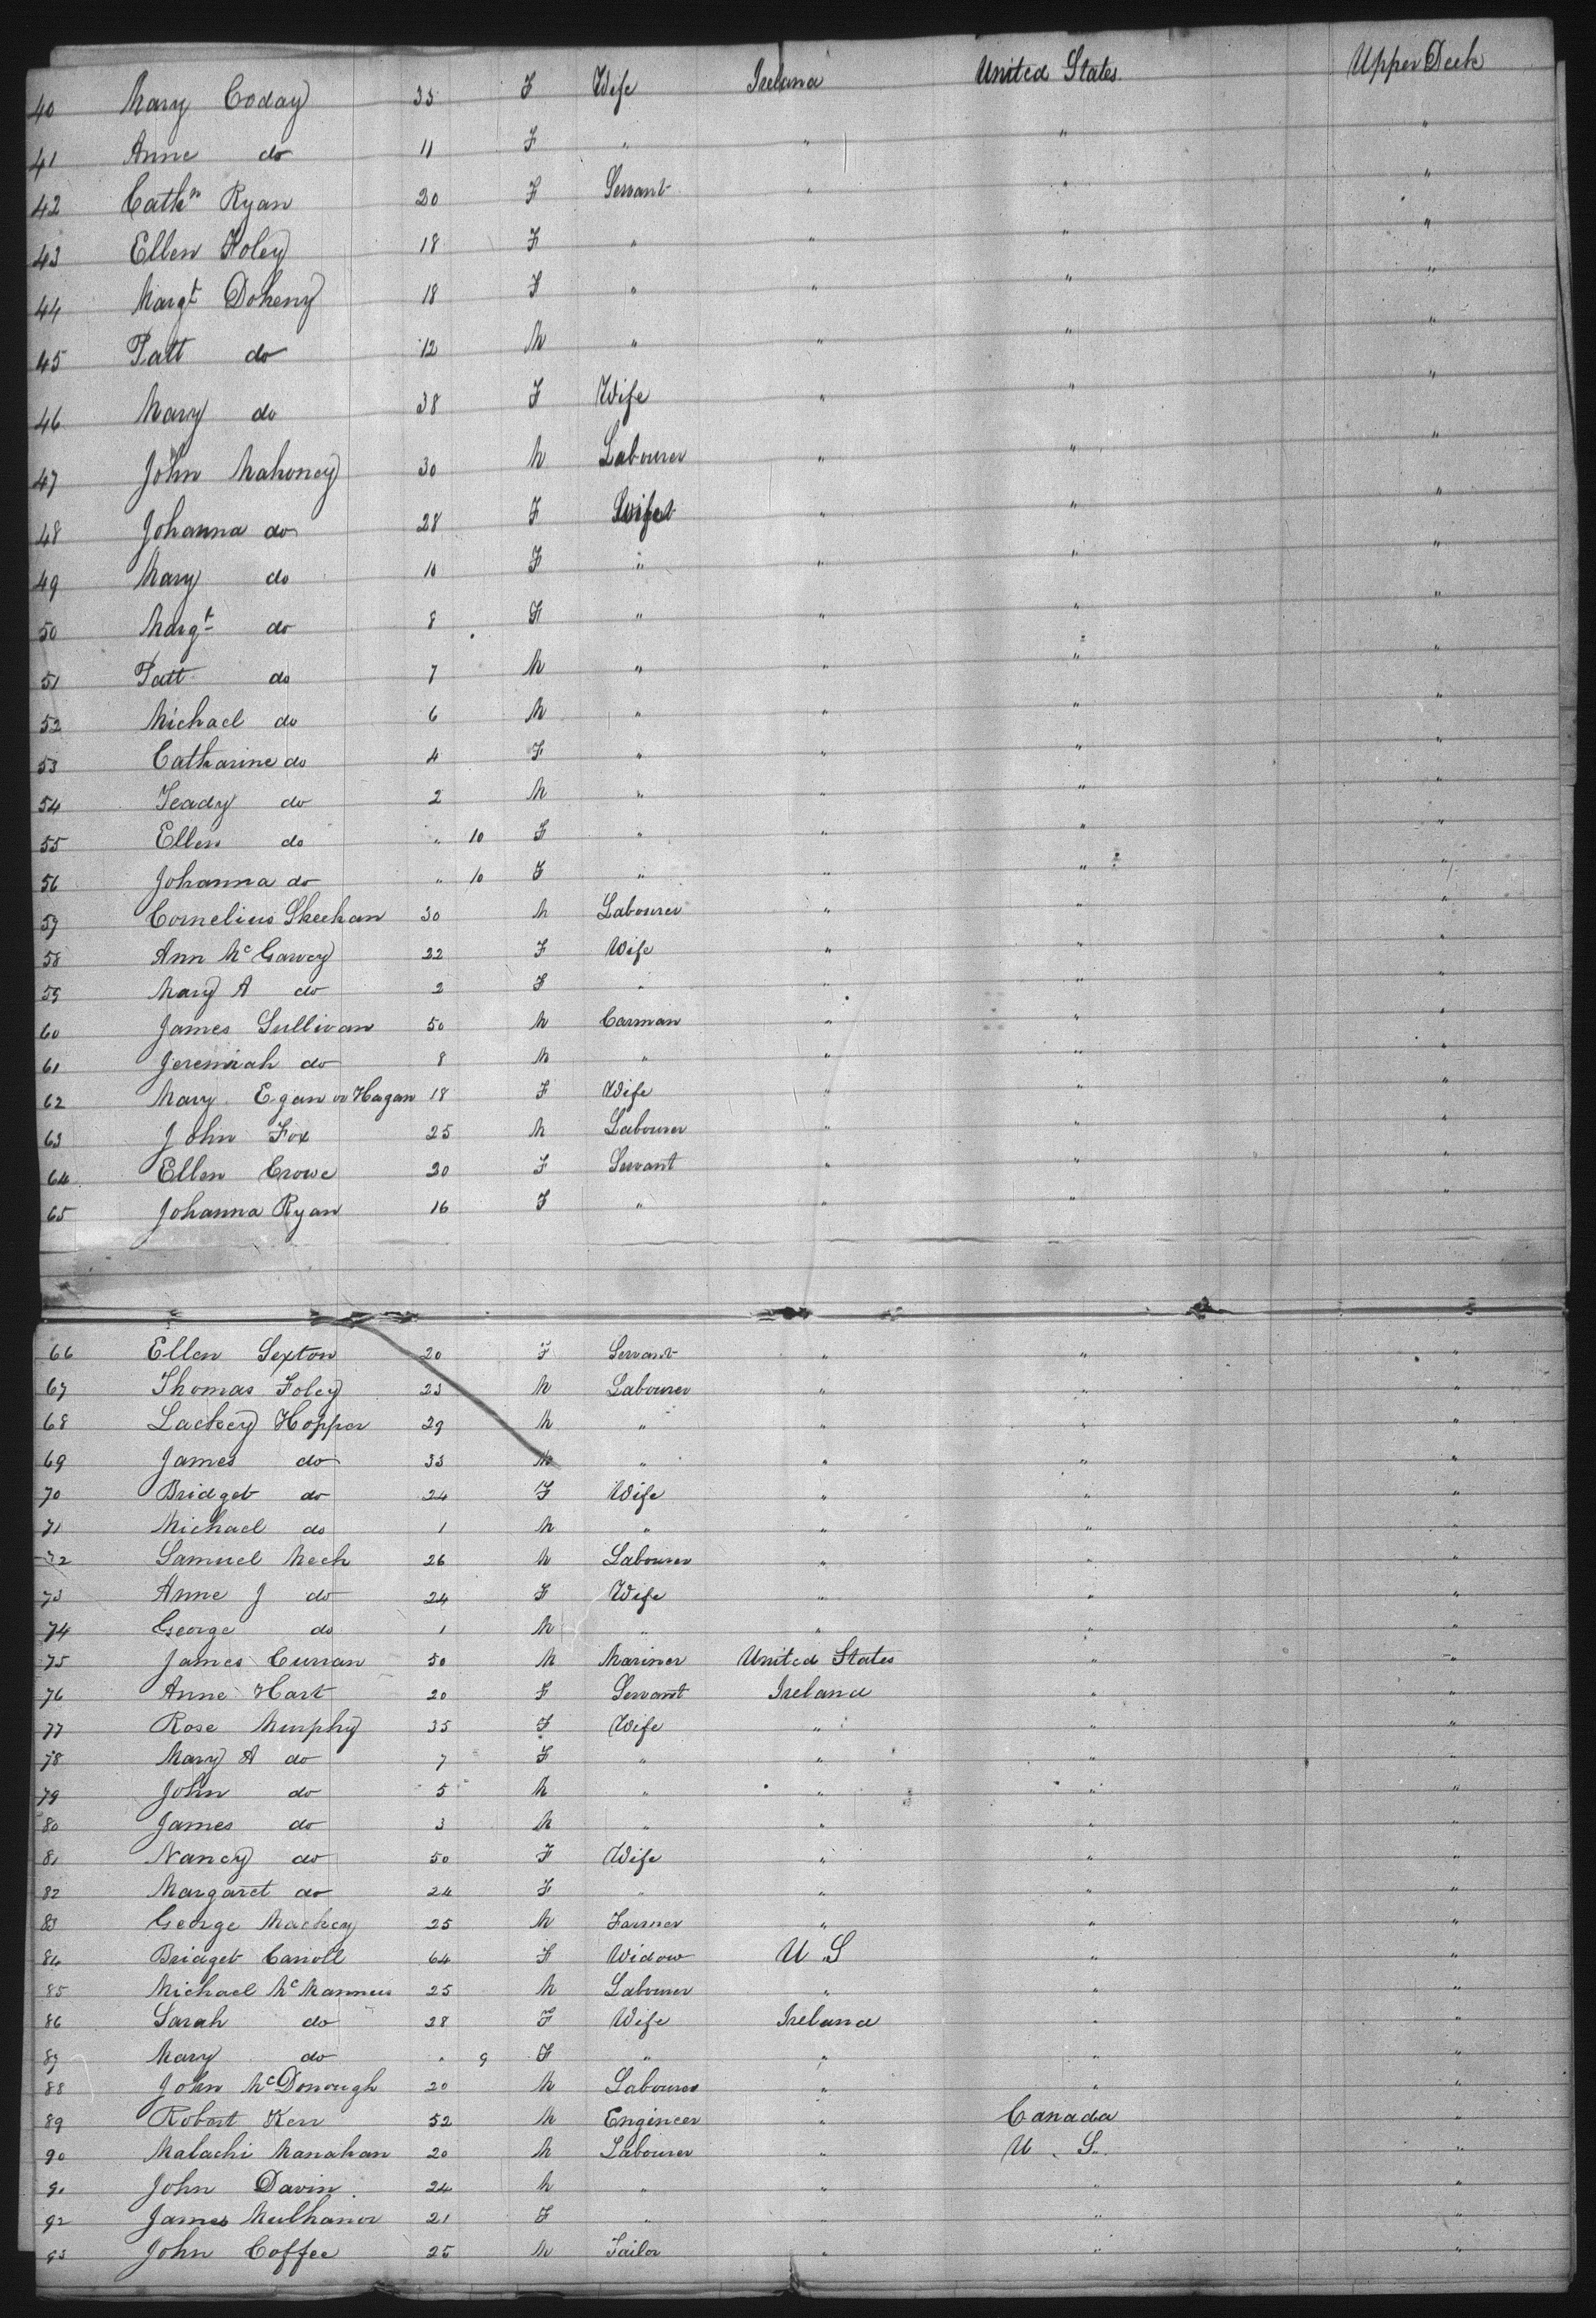 40 Mary Coday 35 F Wife Ireland United States Upper Deck
41 Anne do 11 F " " " "
42 Cathn Ryan 20 F Servant " " "
43 Ellen Foley 18 F " " " "
44 Margt Doheny 18 F " " " "
45 Patt do 12 M " " " "
46 Mary do 38 F Wife " " "
47 John Mahoney 30 M Labourer " " "
48 Johanna do 28 F Wife " " "
49 Mary do 10 F " " " "
50 Margt do 8 F " " " "
51 Patt do 7 M " " " "
52 Michael do 6 M " " " "
53 Catharine do 4 F " " " "
54 Teady do 2 M " " " "
55 Ellen do " 10 F " " " "
56 Johanna do " 10 F " " " "
57 Cornelius Sheehan 30 M Labourer " " "
58 Ann McGarvey 22 F Wife " " "
59 Mary A do 2 F " " " "
60 James Sullivan 50 M Carman " " "
61 Jeremiah do 8 M " " " "
62 Mary Egan or Hagan 18 F Wife " " "
63 John Fox 25 M Labourer " " "
64 Ellen Crowe 20 F Servant " " "
65 Johanna Ryan 16 F " " " "
66 Ellen Sexton 20 F Servant " " "
67 Thomas Foley 23 M Labourer " " "
68 Lackey Hopper 29 M " " " "
69 James do 33 M " " " "
70 Bridget do 24 F Wife " " "
71 Michael do 1 M " " " "
72 Samuel Meek 26 M Labourer " " "
73 Anne J do 24 F Wife " " "
74 George do 1 M " " " "
75 James Curran 50 M Mariner United States " "
76 Anne Hart 20 F Servant Ireland " "
77 Rose Murphy 35 F Wife " " "
78 Mary A do 7 F " " " "
79 John do 5 M " " " "
80 James do 3 M " " " "
81 Nancy do 50 F Wife " " "
82 Margaret do 24 F " " " "
83 George Mackey 25 M Farmer " " "
84 Bridget Carroll 64 F Widow U S " "
85 Michael McMannus 25 M Labourer " " "
86 Sarah do 28 F Wife Ireland " "
87 Mary do " 9 F " " " "
88 John McDonough 20 M Labourer " " "
89 Robert Kerr 52 M Engineer " Canada "
90 Malachi Manahan 20 M Labourer " U. S. "
91 John Davin 24 M " " " "
92 James 21 F " " " "
93 John Coffee 25 M Tailor " " "